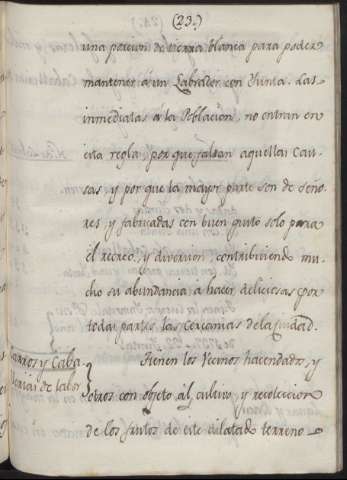 (23.)
una porcion de tierra blanca para poder
mantener à un Labrador con Yunta. Las
inmediatas à la Poblacion, no entran en
esta regla, porque faltan aquellas cau-
sas y por que la mayor parte son de seño-
res, y fabricadas con buen gusto solo para
el recreo, y diversion, contribuiendo mu-
cho su abundancia à hacer deliciosas por
todas partes las cercanias de la Ciudad.
Carros y Caba
llerias de labor
Tienen los Vecinos hacendados, y
otros con objeto al cultivo, y recoleccion
de los frutos de este dilatado terreno